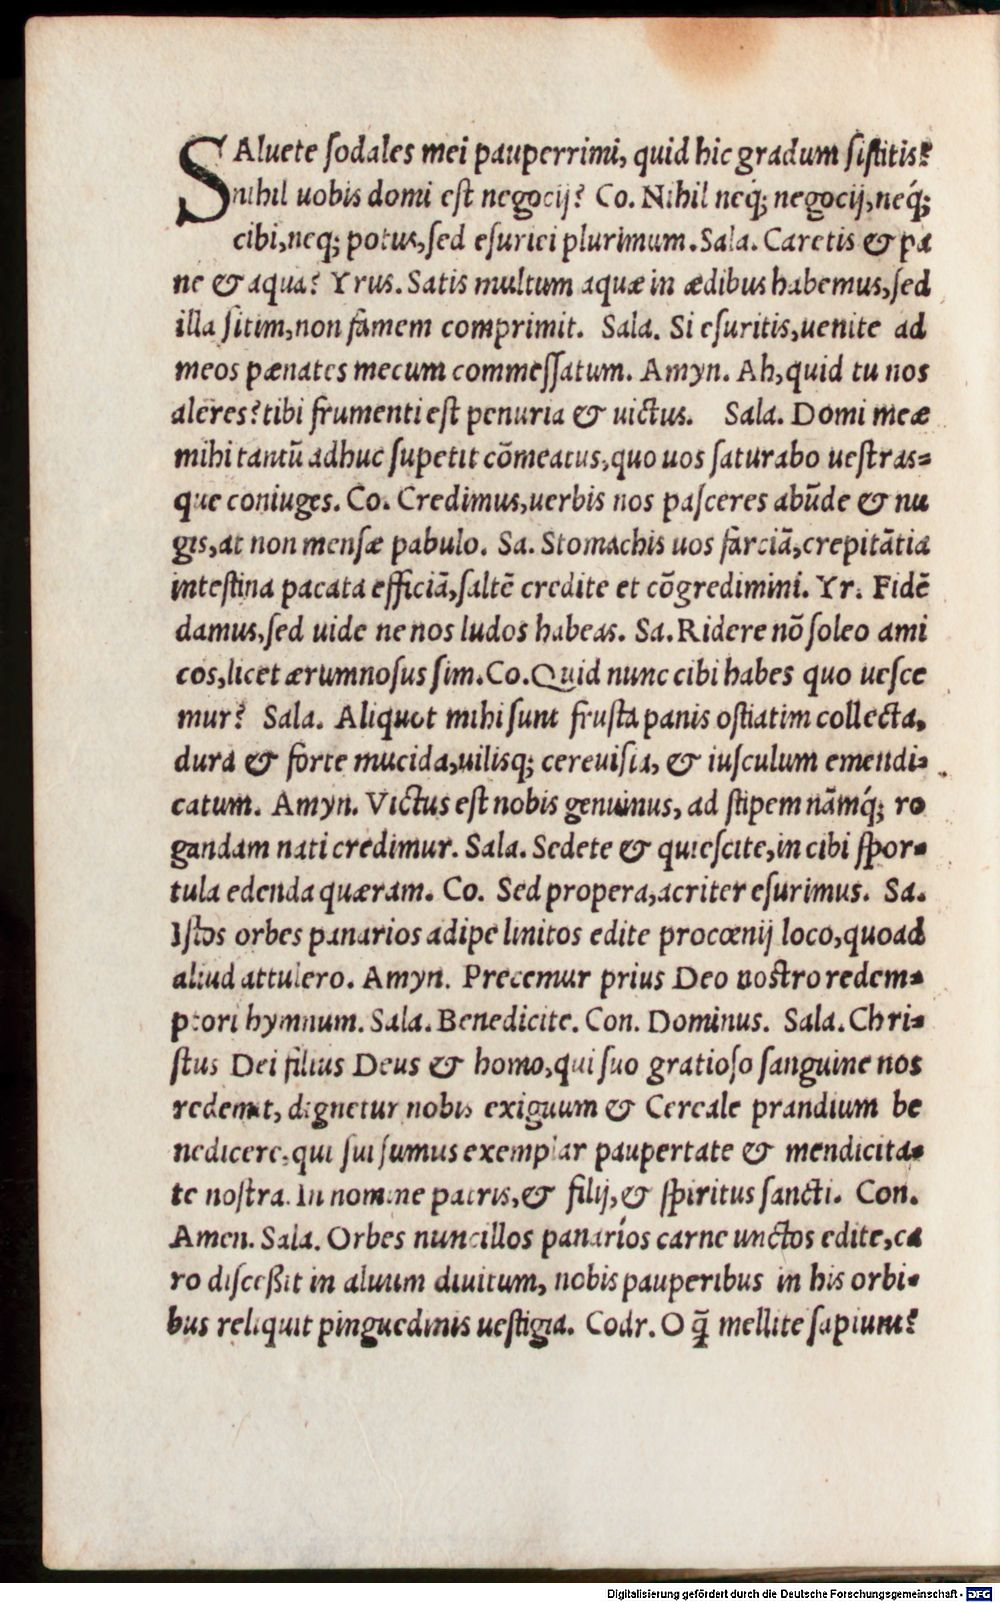 SAluete ſodales mei pauperrimi, quid hic gradum ſiſtitis?
nihil uobis domi eſt negocij? Co. Nihil neq́; negocij, neq́;
cibi, neq; potus, ſed eſuriei plurimum. Sala. Caretis & pa
ne & aqua? Yrus. Satis multum aquæ in ædibus habemus, ſed
illa ſitim, non famem comprimit. Sala. Si eſuritis, uenite ad
meos pænates mecum commeſſatum. Amyn. Ah, quid tu nos
aleres? tibi frumenti eſt penuria & uictus. Sala. Domi meæ
mihi tantũ adhuc ſupetit cõmeatus, quo uos ſaturabo ueſtras=
que coniuges. Co. Credimus, uerbis nos paſceres abũde & nu
gis, at non menſæ pabulo. Sa. Stomachis uos farciã, crepitãtia
inteſtina pacata efficiã, ſaltẽ credite et cõgredimini. Yr. Fidẽ
damus, ſed uide ne nos ludos habeas. Sa. Ridere nõ ſoleo ami
cos, licet ærumnoſus ſim. Co. Quid nunc cibi habes quo ueſce
mur? Sala. Aliquot mihi ſunt fruſta panis oſtiatim collecta,
dura & forte mucida, uilisq; cereuiſia, & iuſculum emendi=
catum. Amyn. Victus eſt nobis genuinus, ad ſtipem nãmq́; ro
gandam nati credimur. Sala. Sedete & quieſcite, in cibi ſpor=
tula edenda quæram. Co. Sed propera, acriter eſurimus. Sa.
Iſtos orbes panarios adipe linitos edite procœnij loco, quoad
aliud attulero. Amyn. Precemur prius Deo noſtro redem=
ptori hymnum. Sala. Benedicite. Con. Dominus. Sala. Chri=
ſtus Dei filius Deus & homo, qui ſuo gratioſo ſanguine nos
redemit, dignetur nobis exiguum & Cereale prandium be
nedicere, qui ſui ſumus exemplar paupertate & mendicita=
te noſtra. In nomine patris, & filij, & ſpiritus ſancti. Con.
Amen. Sala. Orbes nuncillos panaríos carne unctos edite, ca
ro diſceßit in aluum diuitum, nobis pauperibus in his orbi=
bus reliquit pinguedinis ueſtigia. Codr. O q̃ mellite ſapiunt?
Digitalisierung gefördert durch die Deutsche Forschungsgemeinschaft - DFG